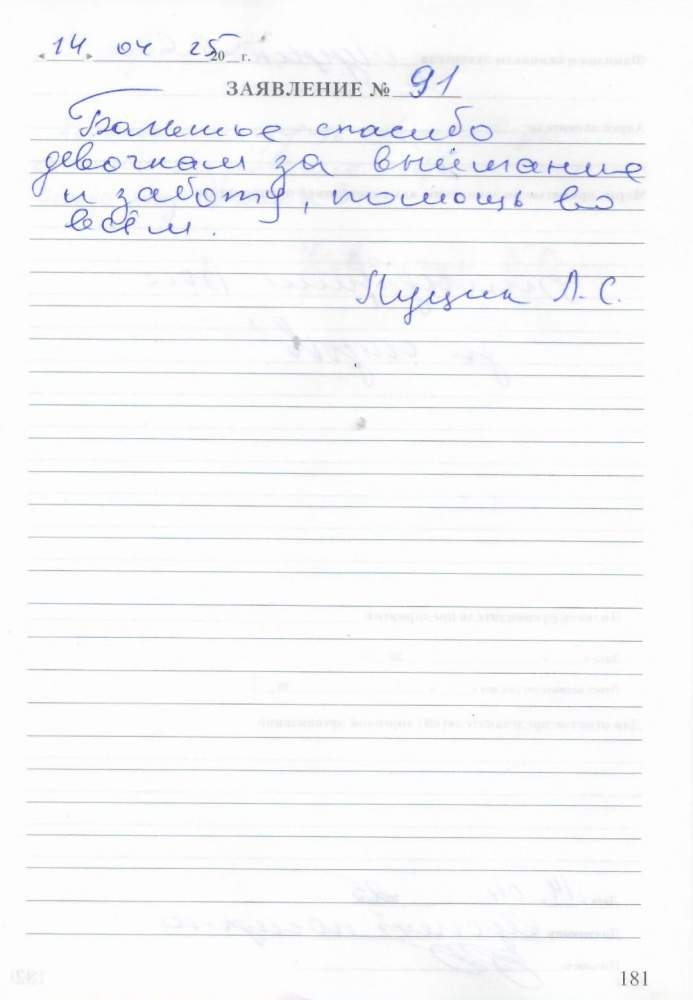 « 14 » 04 25 20 г.
ЗАЯВЛЕНИЕ № 91
Большое спасибо
девочкам за внимание
и заботу, помощь во
всём.
Лущик Л. С.
181